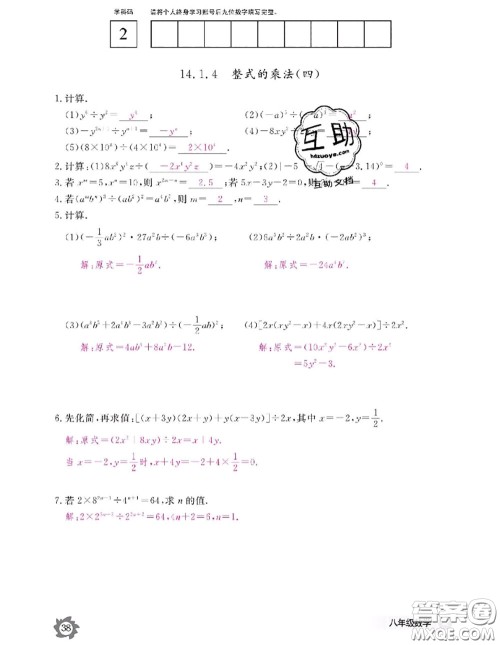 学科码 请将个人终身学习账号后九位数字填写完整。
2
14.1.4 整式的乘法(四)
1.计算.
(1)y⁵÷y²= y³ ; (2)(-a)⁵÷(-a)³=
(3)-y³ⁿ⁺¹÷yⁿ⁺¹= ; (4)-8xy²÷ = 4 ;
(5)(8×10⁸)÷(4×10⁵)= 2×10³ .
2.计算:(1)8x³y²z÷( -2x³y²z )=-4x²y²;(2)|-5 3.14)⁰= 4 .
3.若xᵐ=5,xⁿ=10,则x²ᵐ⁻ⁿ= 2.5 ;若5x-3y-2=0,则 = 4 .
4.若(aᵐbⁿ)³÷(ab²)²=a⁴b⁵,则m= 2 ,n= 3 .
5.计算.
(1)(-1/3ab²)²·27a²b÷(-6a³b³); (2)5a³b²÷2a²b·(-2ab³);
解:原式=-1/2ab². 解:原式=
(3)(a³b³+2a⁴b²-3a²b²)÷(-1/2ab)²; (4)[2x(xy²-x)+4x(2xy²-x)]÷2x².
解:原式=4ab³+8a²b-12. 解:原式=(10x²y²-6x²)÷2x²
=5y²-3.
6.先化简,再求值:[(x+3y)(2x+y)+y(x-3y)]÷2x,其中x=-2,y=1/2.
解:原式=(2x²+8xy)÷2x=x+4y.
当x=-2,y=1/2时,x+4y=-2+4×1/2=0.
7.若2×8²ⁿ⁻¹÷4ⁿ⁺¹=64,求n的值.
解:2×2 ÷2 =64,4n+2=6,n=1.
互助
hdzuoye.com
互助文档
38
八年级数学
答案圈
MXQE.COM